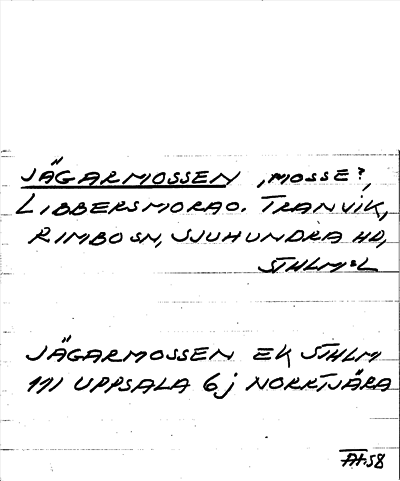 JÄGARMOSSEN , MOSSE?,
LIBBERSMORAO. TRANVIK,
RIMBO SN, SJUHUNDRA HD,
STHLMS L
JÄGARMOSSEN EK STHLM
111 UPPSALA 6j NORRTJÄRA
AH.58